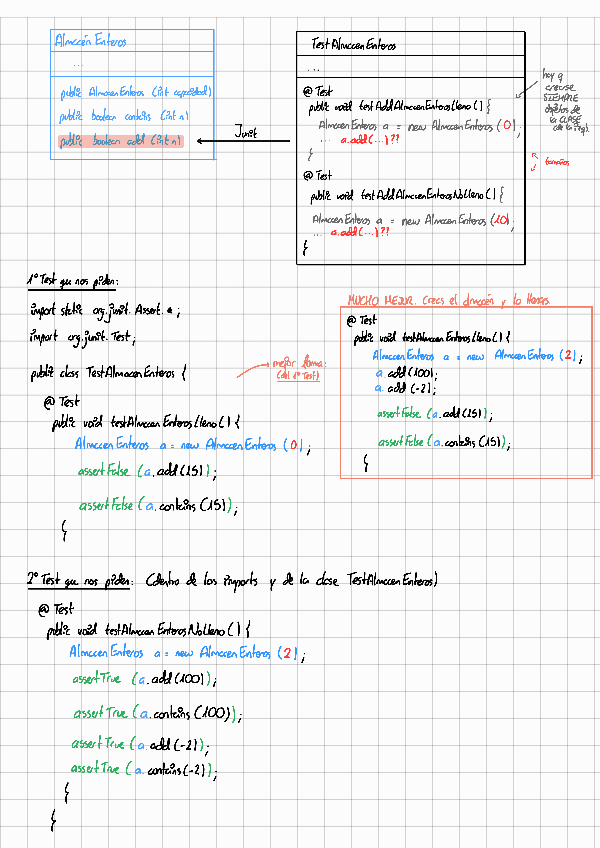 Almacén Enteros
...
public AlmacenEnteros (int capacidad)
public boolean contains (int n)
public boolean add (int n)
Junit
Test Almacen Enteros
...
@ Test
public void testAddAlmacenEnterosLleno () {
AlmacenEnteros a = new AlmacenEnteros (0);
... a.add(...)??
}
@ Test
public void testAddAlmacenEnterosNoLleno () {
AlmacenEnteros a = new AlmacenEnteros (10);
... a.add(...)??
}
hay q
crearse
SIEMPRE
objetos de
la CLASE
tamaños
1º Test que nos piden:
import static org.junit. Assert. *;
import org.junit. Test;
public class TestAlmacenEnteros {
@ Test
public void testAlmacenEnterosLleno () {
AlmacenEnteros a = new AlmacenEnteros (0);
assertFalse (a.add(15));
assertFalse (a.contains (15));
}
mejor forma:
(del 1º Test)
MUCHO MEJOR. Creas el almacén y lo llenas.
@ Test
public void testAlmacenEnterosLleno () {
AlmacenEnteros a = new AlmacenEnteros (2);
a.add(100);
a.add(-2);
assertFalse (a.add(15));
assertFalse (a.contains (15));
}
2º Test que nos piden: (dentro de los imports y de la clase TestAlmacenEnteros)
@ Test
public void testAlmacenEnterosNoLleno () {
AlmacenEnteros a = new AlmacenEnteros (2);
assertTrue (a.add(100));
assertTrue (a.contains (100));
assertTrue (a.add(-2));
assertTrue (a.contains(-2));
}
}